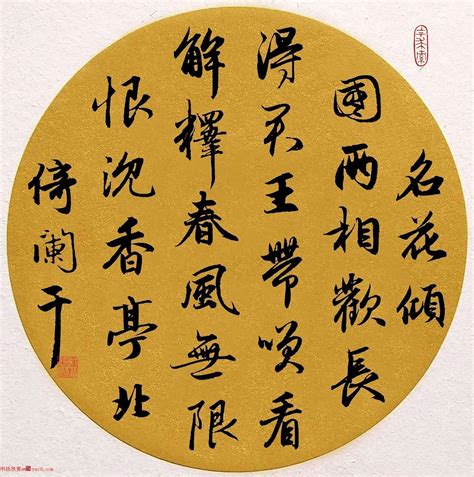 名花傾
國两相歡長
得君王帶咲看
解釋春風無限
恨沉香亭北
倚闌干